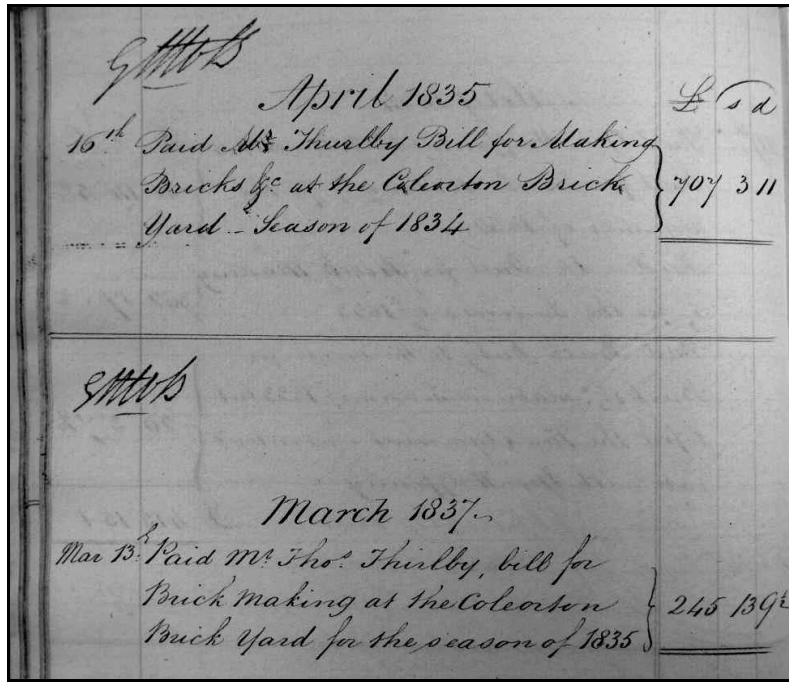 April 1835
£ s d
16th Paid Mr Thurlby Bill for Making
Bricks &c at the Coleorton Brick
Yard - Season of 1834
707 3 11
March 1837
Mar 13th Paid Mr Thos Thirlby, bill for
Brick Making at the Coleorton
Brick Yard for the season of 1835
245 13 9½